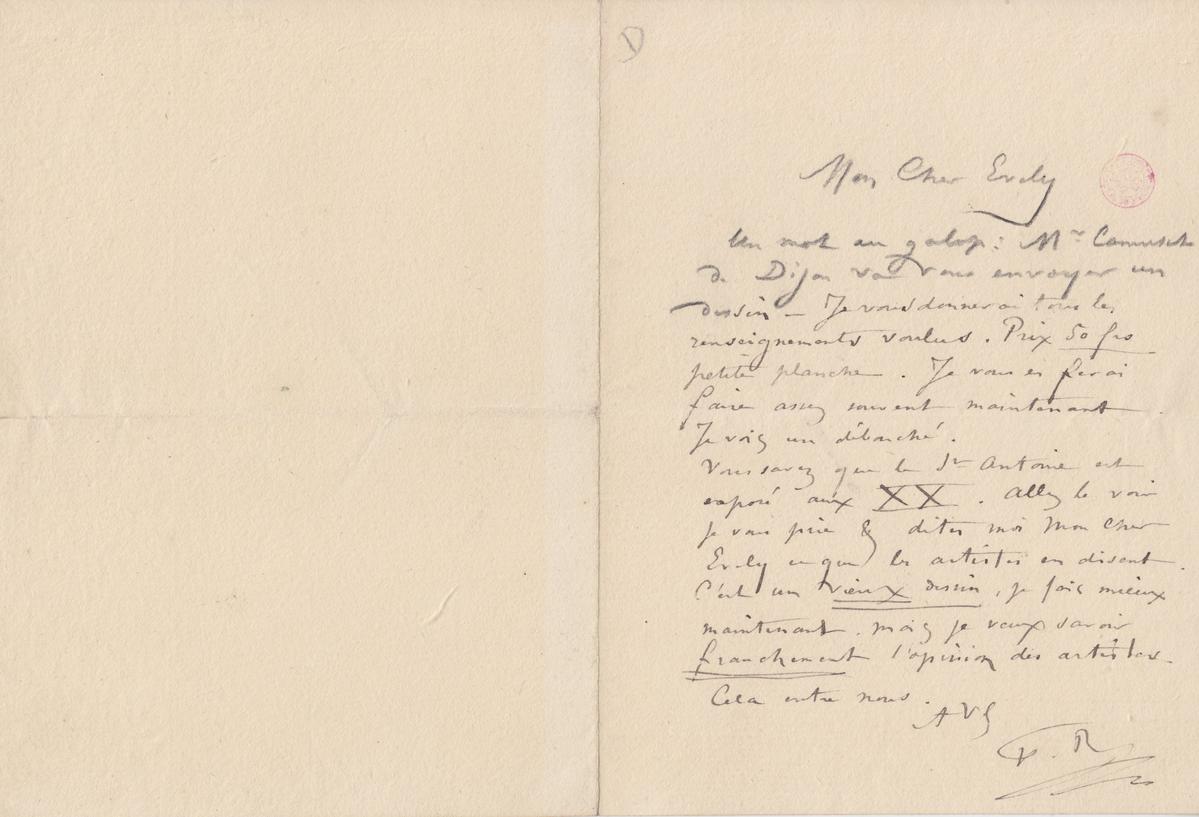 Mon Cher Evely
Un mot au galop : Mr Camuset
de Dijon va vous envoyer un
dessin — Je vous donnerai tous les
renseignements voulus. Prix 50 frs
petite planche. Je vous en ferai
faire assez souvent maintenant
Je vois un débouché.
Vous savez que le St Antoine est
exposé aux XX. Allez le voir
je vous prie & dites moi Mon Cher
Evely ce que les artistes en disent.
C'est un vieux dessin, je fais mieux
maintenant. mais je veux savoir
franchement l'opinion des artistes.
Cela entre nous.
A VS
F. R